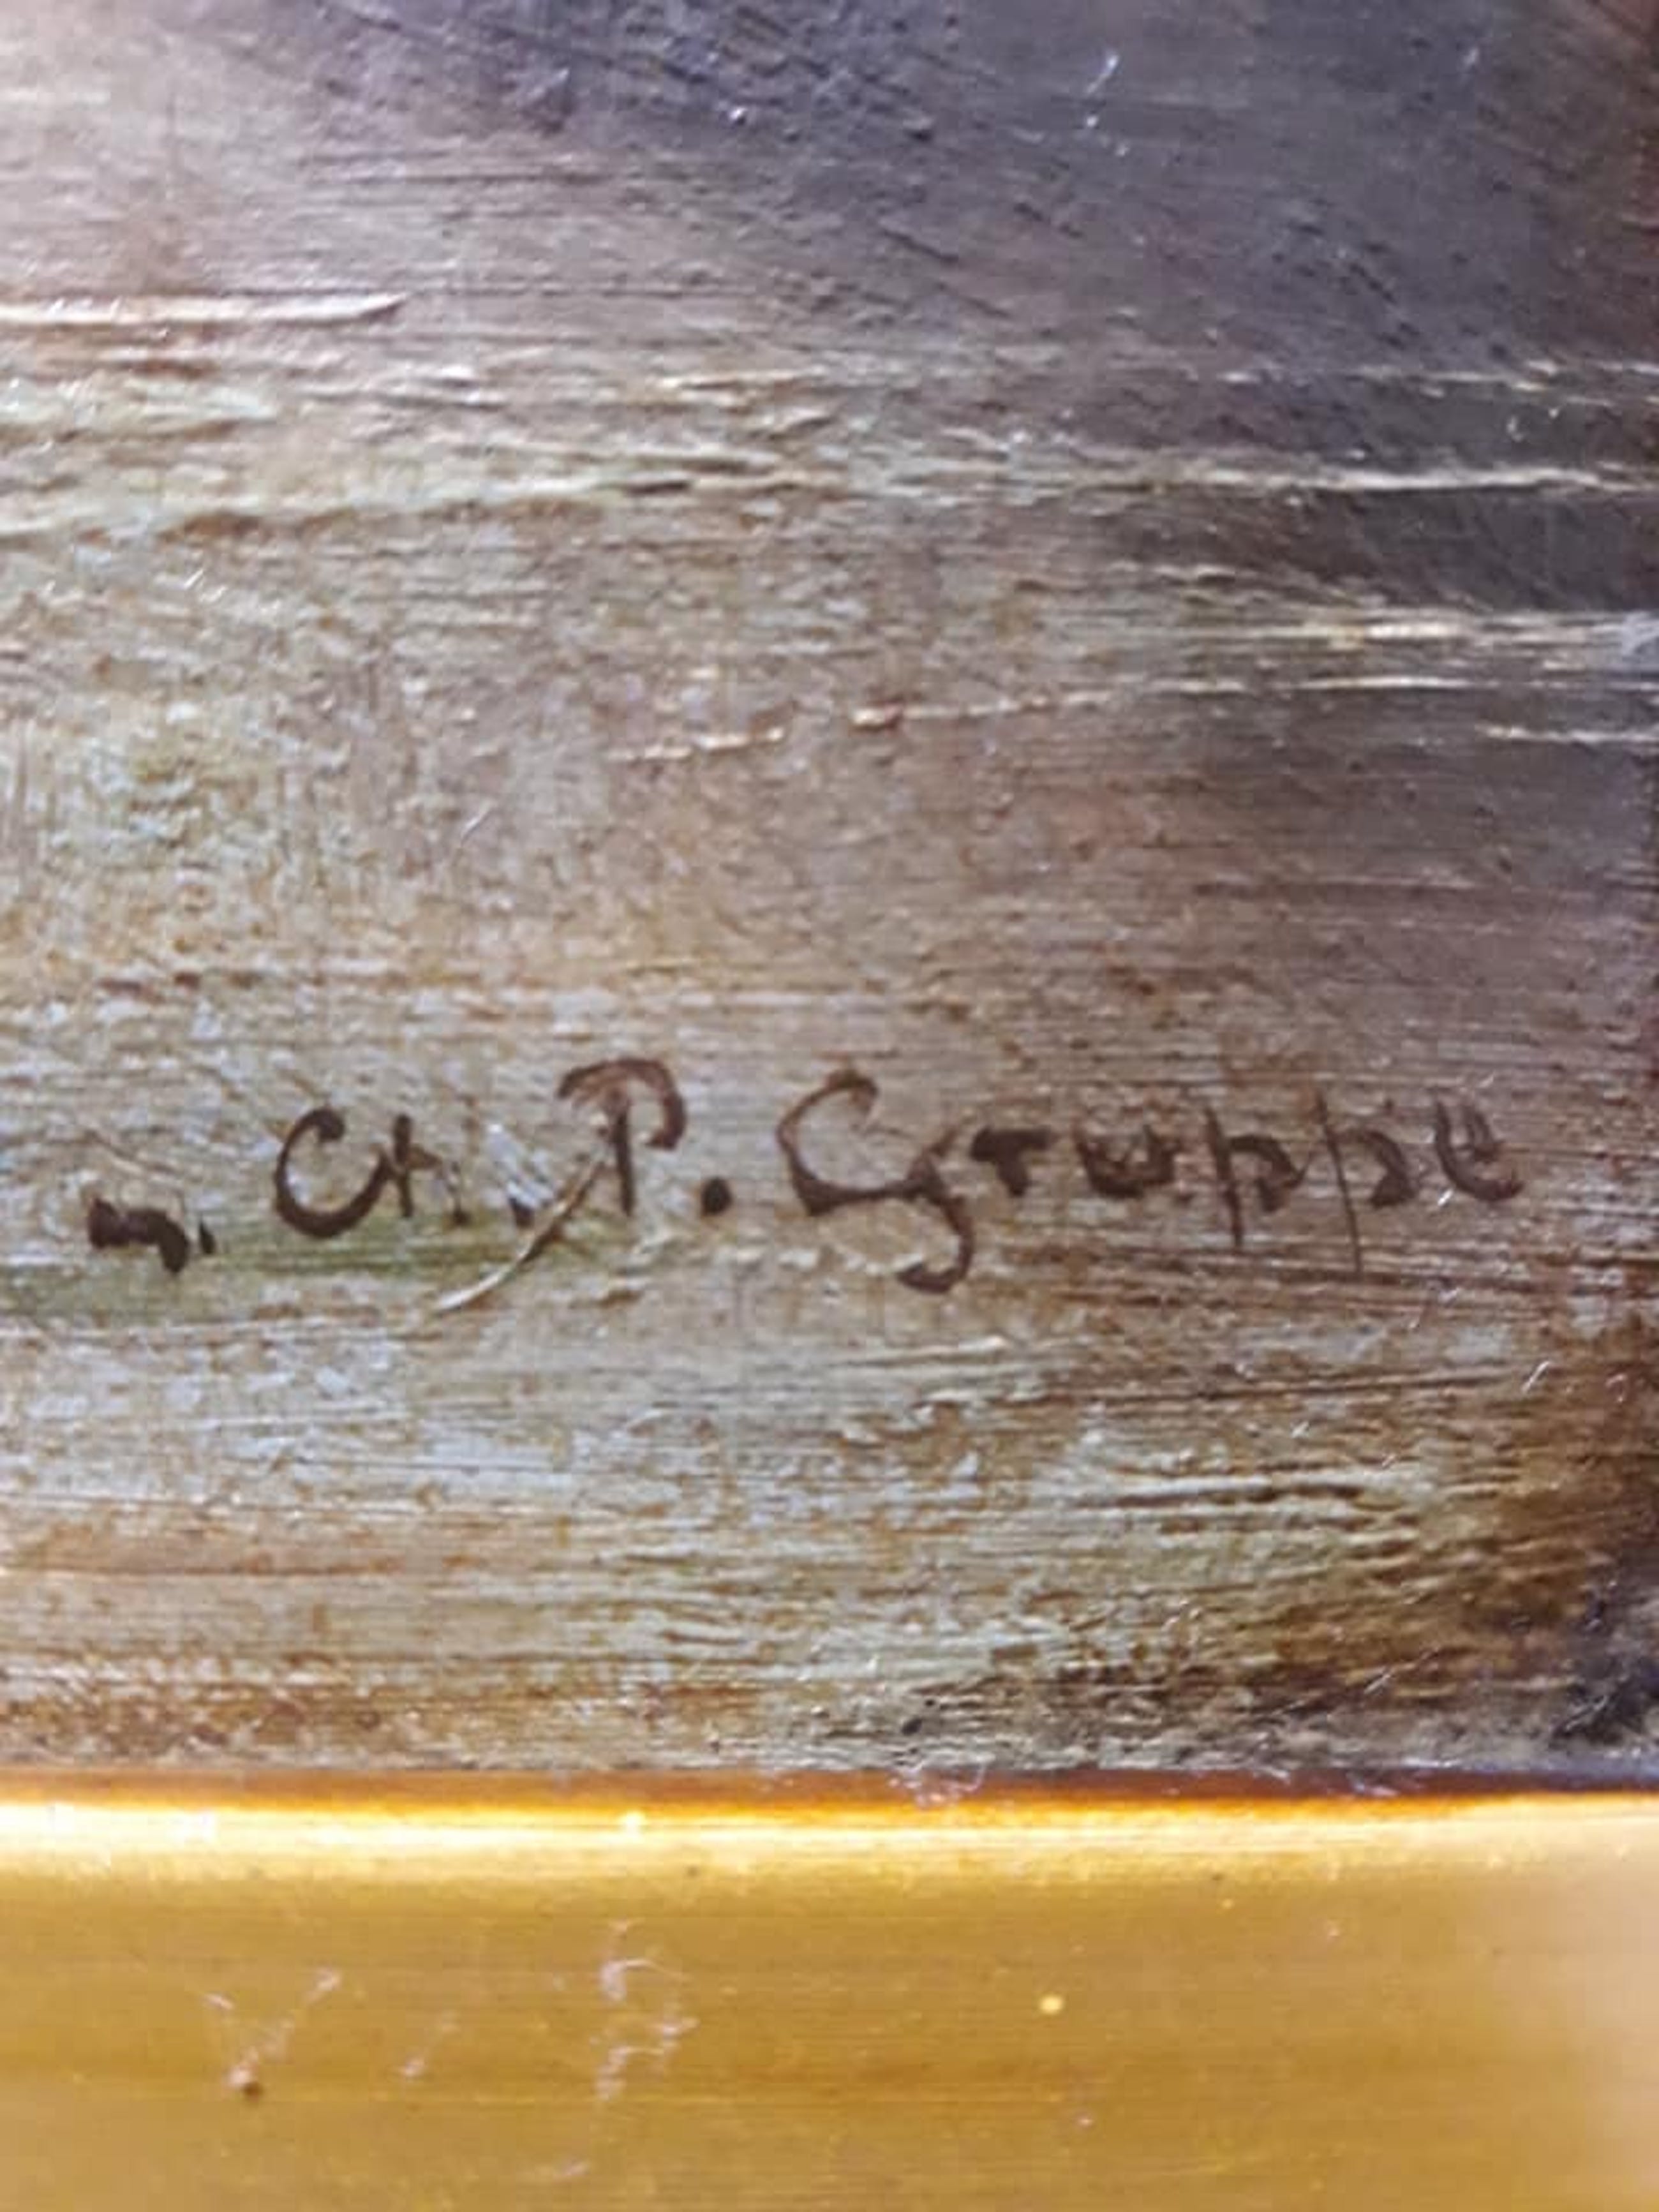 n. Ch. P. Gruppe